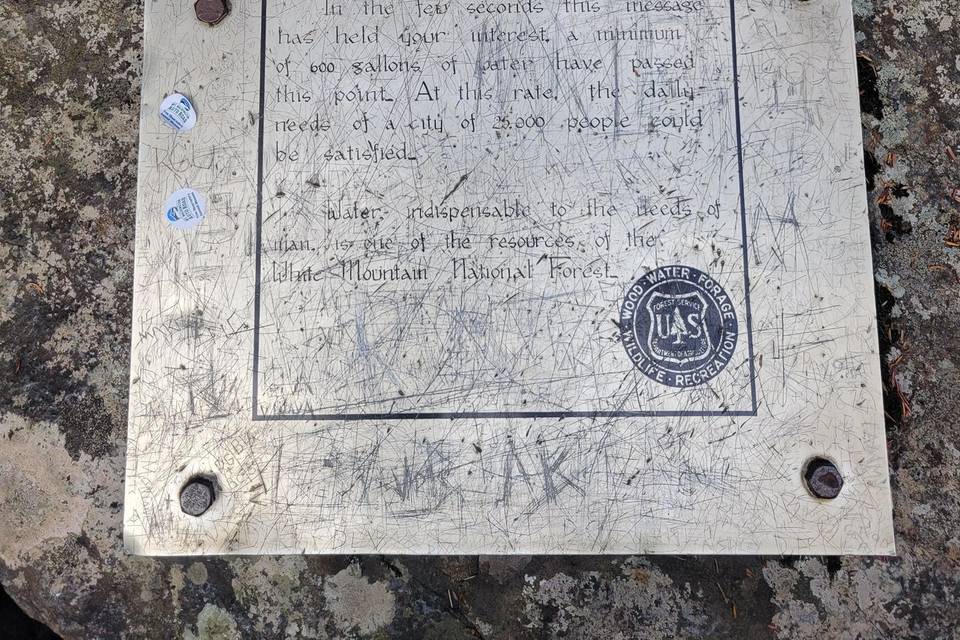 In the few seconds this message
has held your interest, a minimum
of 600 gallons of water have passed
this point. At this rate, the daily
needs of a city of 25,000 people could
be satisfied.
Water, indispensable to the needs of
man, is one of the resources of the
White Mountain National Forest.
WOOD · WATER · FORAGE
WILDLIFE · RECREATION
FOREST SERVICE
U S
DEPARTMENT OF AGRICULTURE
AK